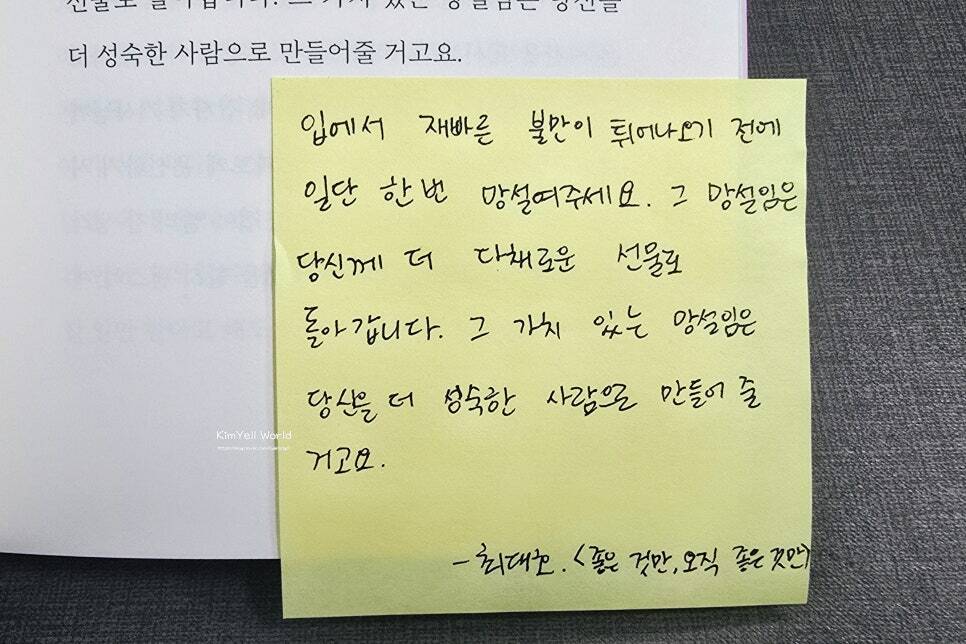 선물로 돌아갑니다. 그 가치 있는 망설임은 당신을
더 성숙한 사람으로 만들어줄 거고요.
입에서 재빠른 불만이 튀어나오기 전에
일단 한 번 망설여주세요. 그 망설임은
당신께 더 다채로운 선물로
돌아갑니다. 그 가치 있는 망설임은
당신을 더 성숙한 사람으로 만들어 줄
거고요.
KimYell World
-최대호. <좋은 것만, 오직 좋은 것만>